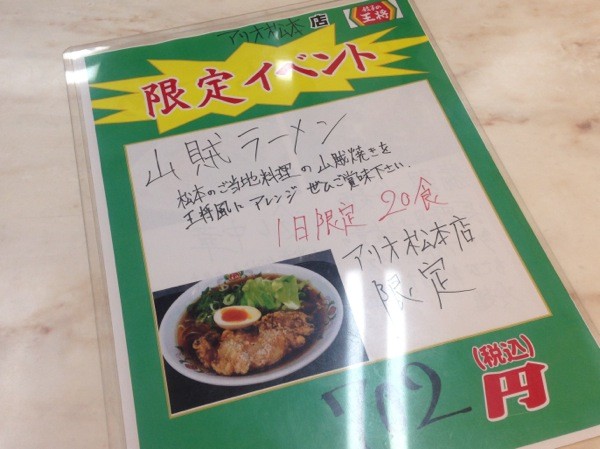 アリオ松本 店
餃子の
王将
限定イベント
山賊ラーメン
松本のご当地料理の山賊焼きを
王将風にアレンジ ぜひご賞味下さい。
1日限定 20食
アリオ松本店
限定
702
(税込)
円